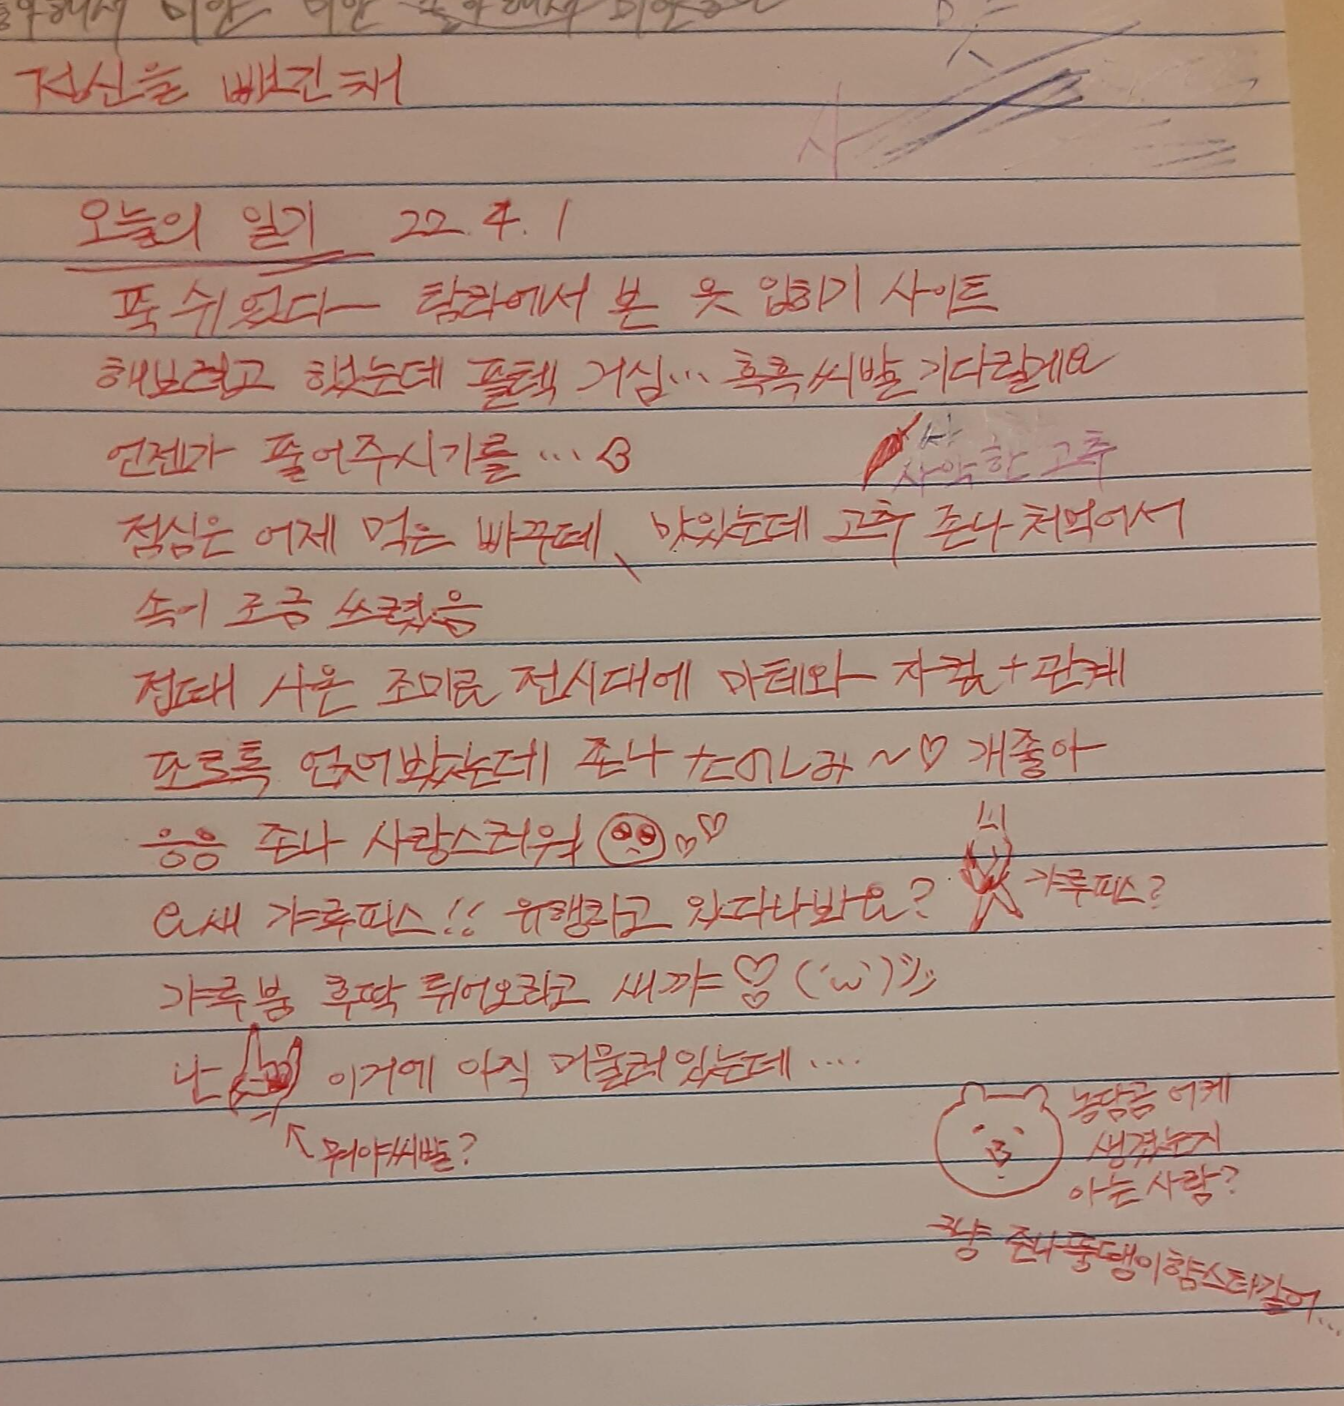 미안 미안
정신을 빼긴채
오늘의 일기 22.4.1
푹 쉬었다 탐라에서 본 옷 입히기 사이트
해보려고 했는데 플텍 거심... 흑흑 씨발 기다릴게요
언젠가 풀어주시기를... <3
사
사악한 고추
점심은 어제 먹은 빠꾸떼, 맛있는데 고추 존나 처먹어서
속이 조금 쓰렸음
접때 사온 조미료 전시대에 마테와 자컾+관계
포르톡 얹어봤는데 존나 たのしみ~♡ 개좋아
응응 존나 사랑스러워 ♡♡
요새 갸루피스!! 유행라고 있다나봐요?
갸루피스?
갸루붐 후딱 튀어오라고 새꺄♡ ('ω')
난 이거에 아직 머물러있는데....
뭐야씨발?
농담곰 어케
생겼는지
아는 사람?
걍 존나 뚱땡이햄스타같어...